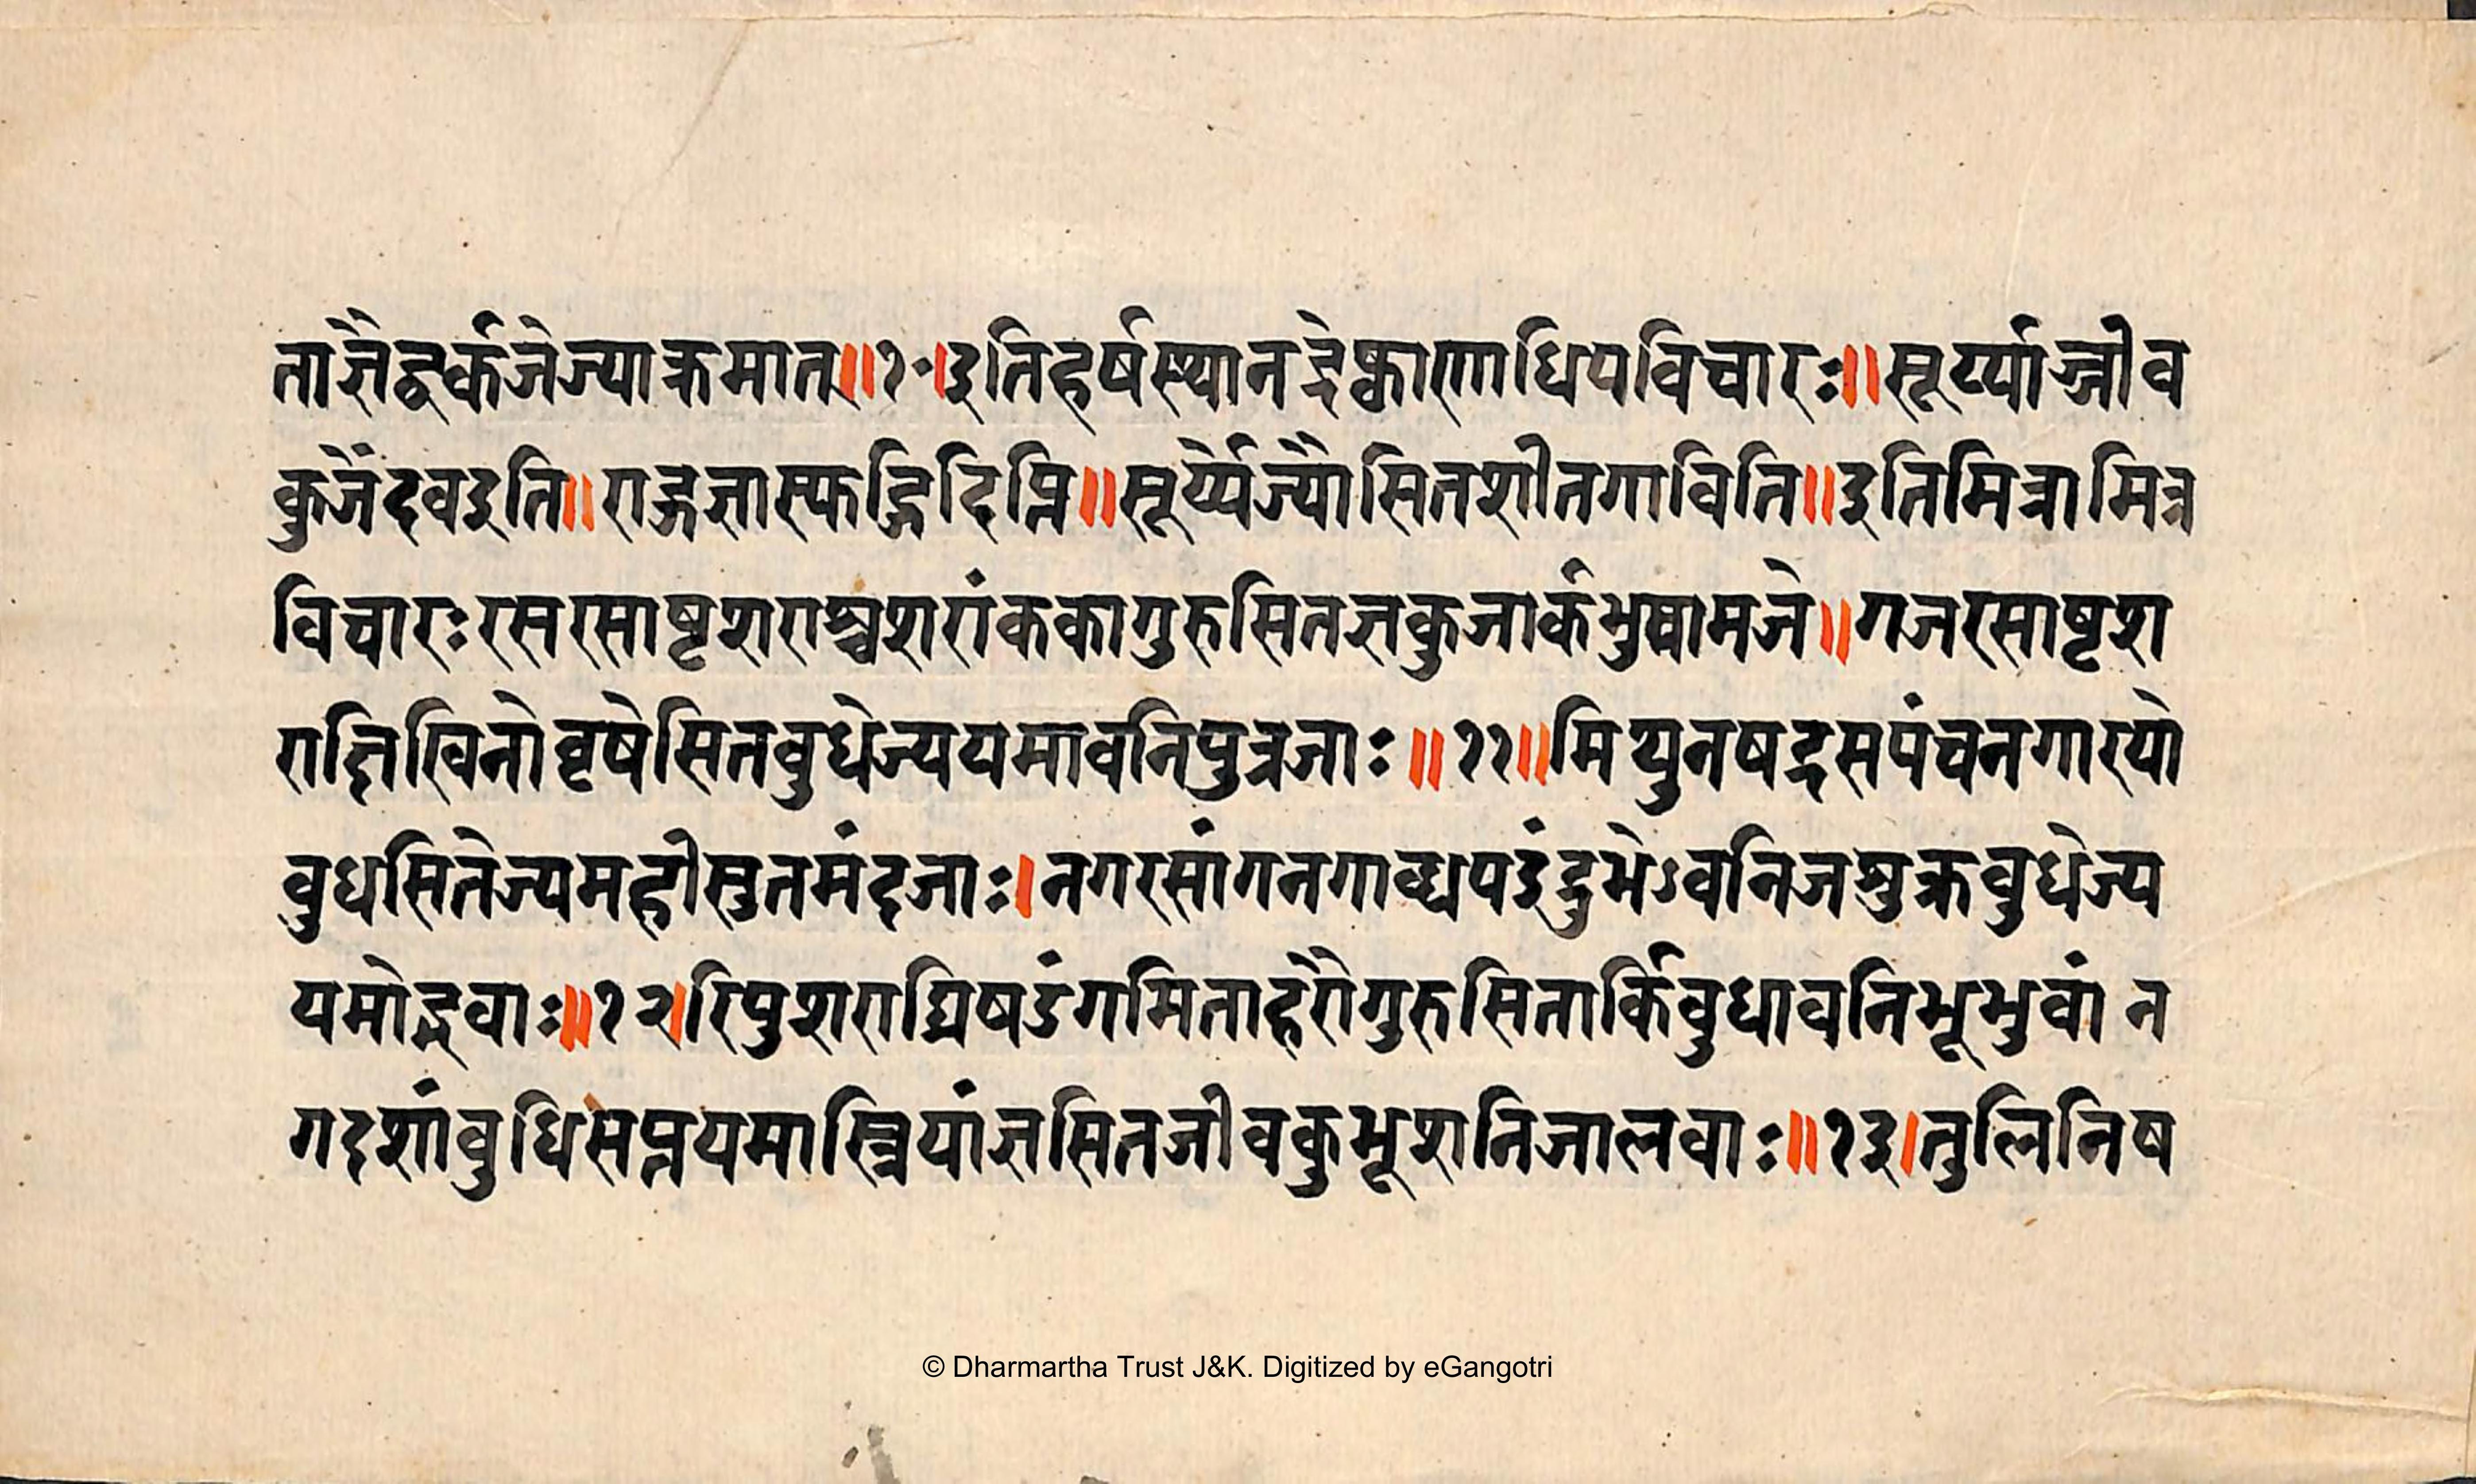 ताज्ञैद्वर्कजेज्याक्रमात्॥१॰।इतिहर्षस्थानद्रेष्काणाधिपविचारः॥सूर्य्याज्जीव
कुजेंदवइति॥राज्ञज्ञास्फजिदिप्ति॥सूर्य्येज्यौसितशीतगाविति॥इतिमित्रामित्र
विचारःरसरसाष्टशराश्चशरांककागुरुसितज्ञकुजार्कभुवामजे॥गजरसाष्टश
राज्ञिखिनोवृषेसितवुधेज्ययमावनिपुत्रजाः॥११॥मिथुनषद्रसपंचनगारयो
वुधसितेज्यमहीसुतमंदजाः।नगरसांगनगाब्ध्यपइंदुभेऽवनिजशुक्रवुधेज्य
यमोद्भवाः॥१२।रिपुशराद्रिषडंगमिताहरौगुरुसितार्किवुधावनिभूभुवां न
गदशांवुधिसप्तयमास्त्रियांज्ञसितजीवकुभूशनिजालवाः॥१३।तुलिनिष
© Dharmartha Trust J&K. Digitized by eGangotri